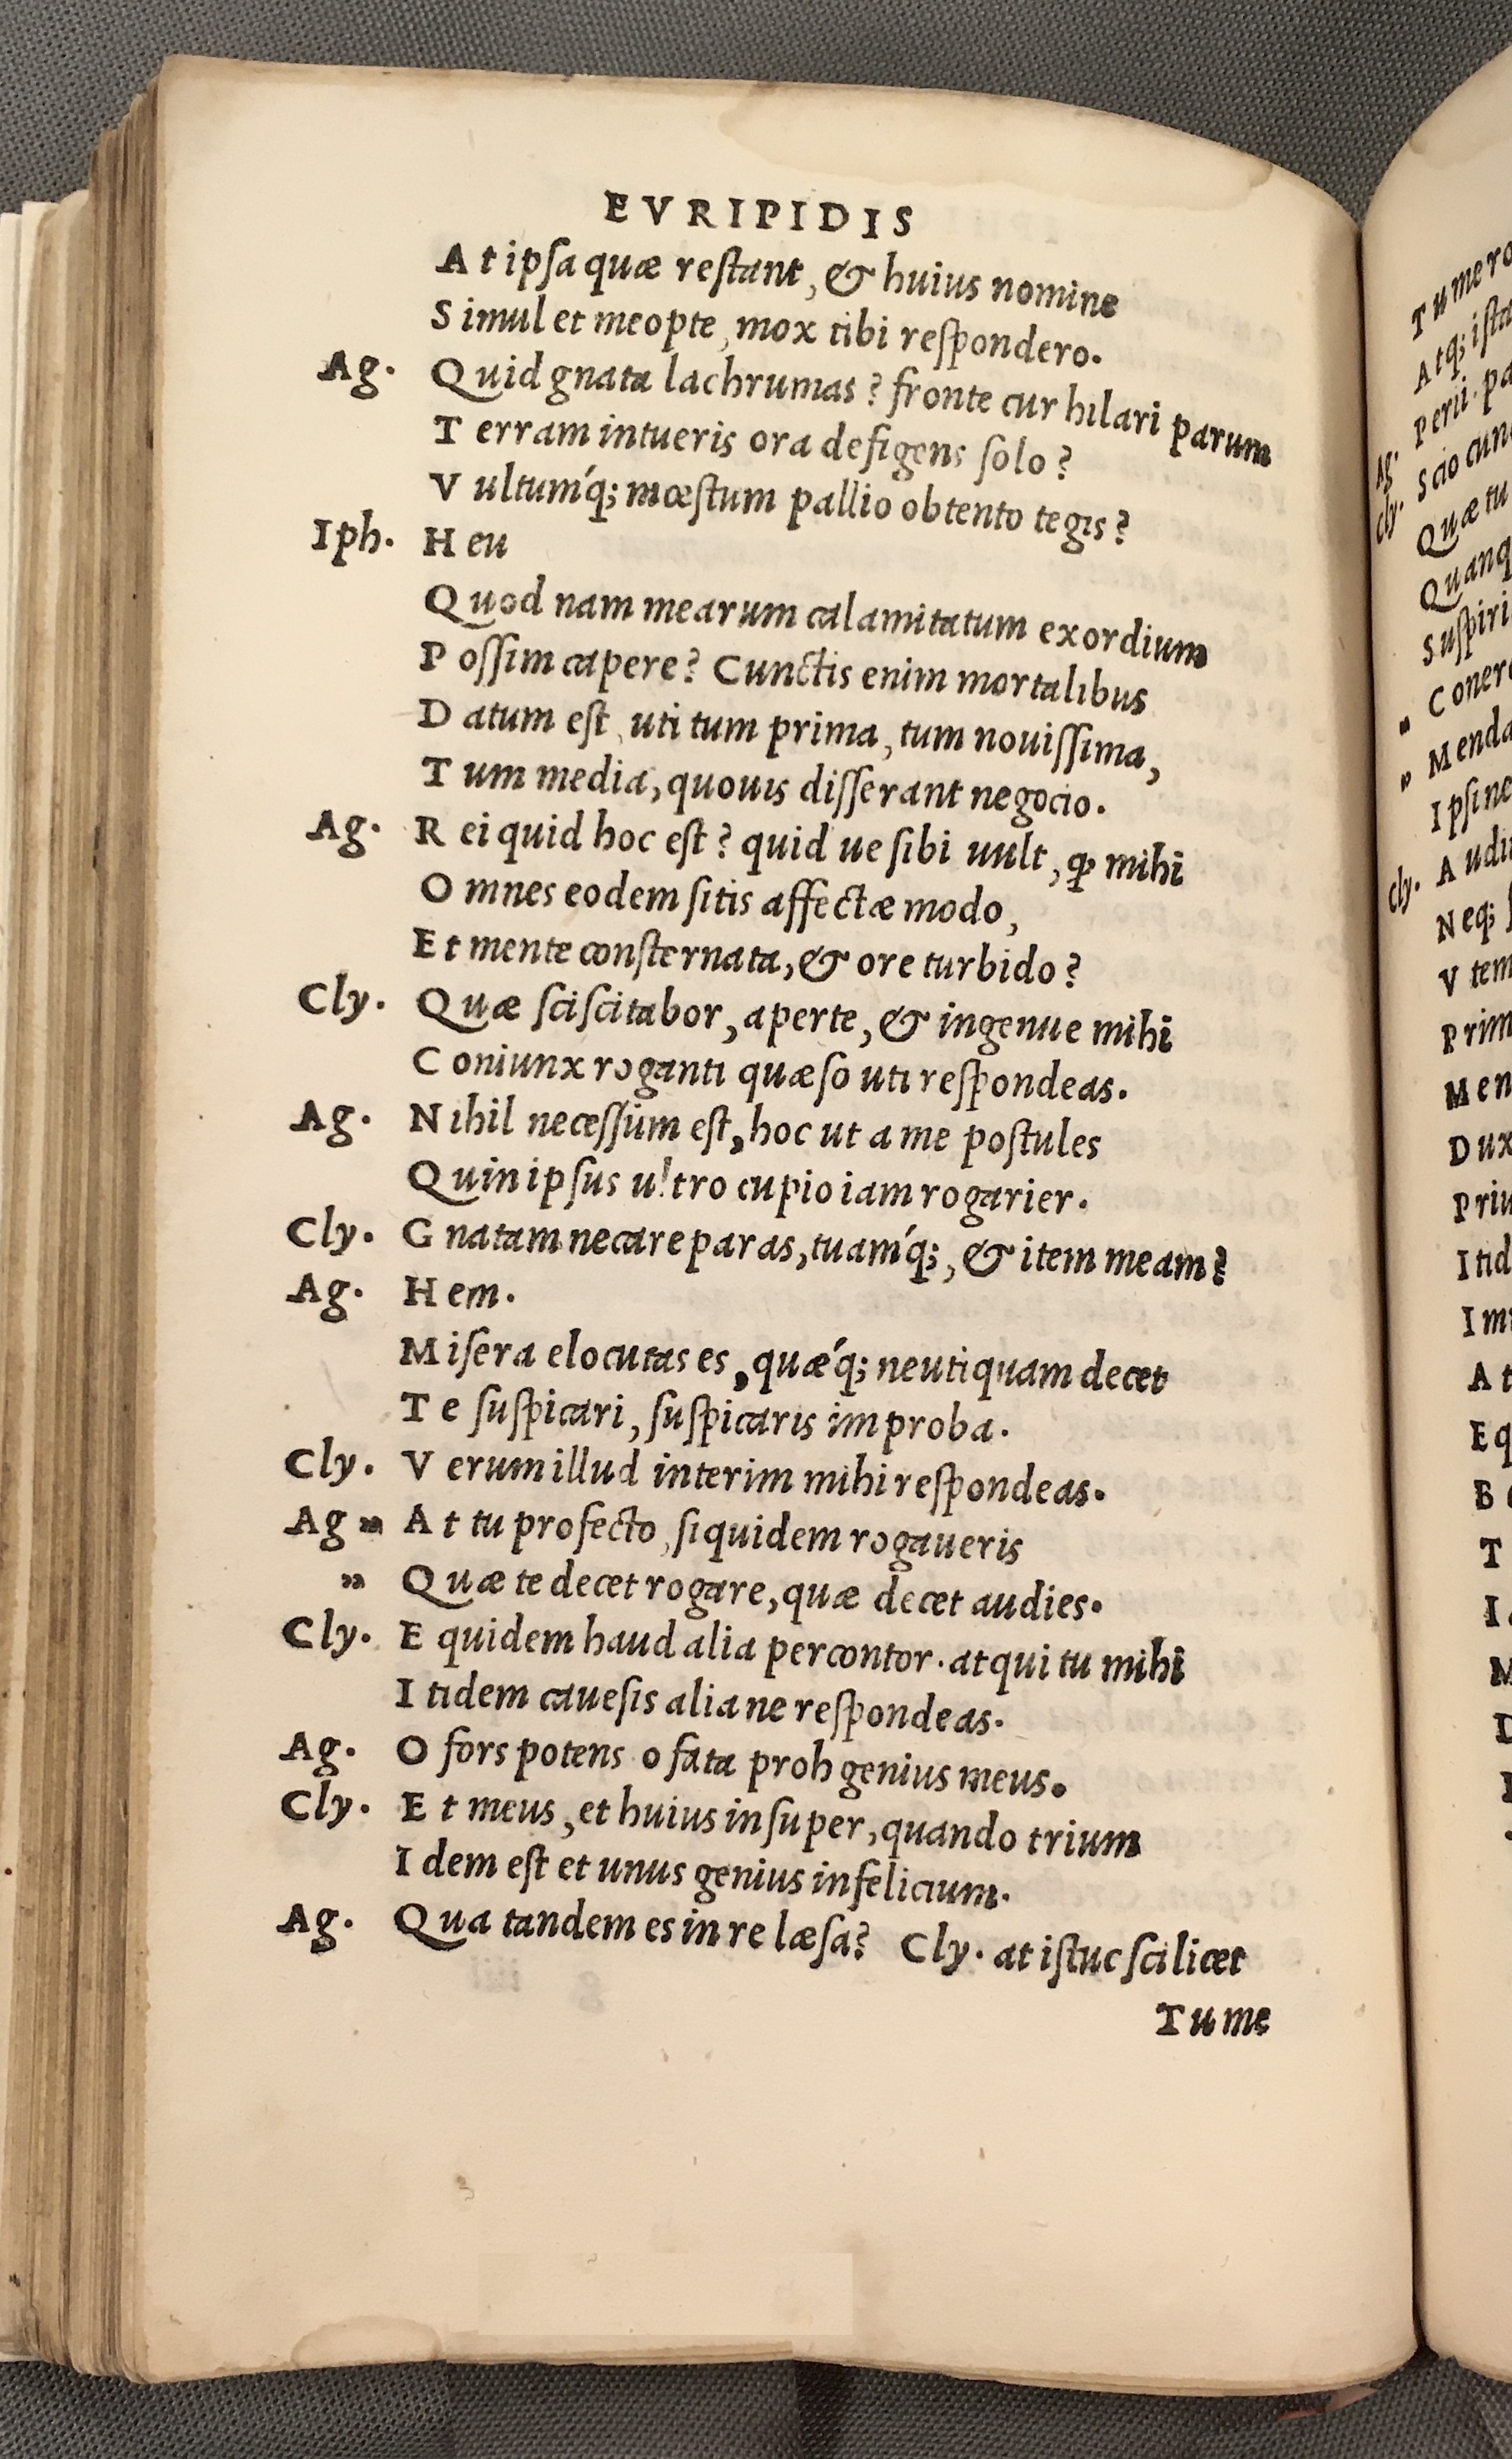 EVRIPIDIS
At ipsa quæ restant, & huius nomine
Simul et meopte, mox tibi respondero.
Ag. Quid gnata lachrumas? fronte cur hilari parum
Terram intueris ora defigens solo?
Vultumq́; mœstum pallio obtento tegis?
Iph. Heu
Quod nam mearum calamitatum exordium
Possim capere? Cunctis enim mortalibus
Datum est, uti tum prima, tum nouissima,
Tum media, quouis disserant negocio.
Ag. Rei quid hoc est? quid ue sibi uult, ꝙ mihi
Omnes eodem sitis affectæ modo,
Et mente consternata, & ore turbido?
Cly. Quæ sciscitabor, aperte, & ingenue mihi
Coniunx roganti quæso uti respondeas.
Ag. Nihil necessum est, hoc ut a me postules
Quin ipsus ultro cupio iam rogarier.
Cly. Gnatam necare paras, tuamq́;, & item meam?
Ag. Hem.
Misera elocutas es, quæq́; neutiquam decet
Te suspicari, suspicaris improba.
Cly. Verum illud interim mihi respondeas.
Ag „ At tu profecto, siquidem rogaueris
„ Quæ te decet rogare, quæ decet audies.
Cly. Equidem haud alia percontor. atqui tu mihi
Itidem cauesis alia ne respondeas.
Ag. O fors potens o fata proh genius meus.
Cly. Et meus, et huius insuper, quando trium
Idem est et unus genius infelicium.
Ag. Qua tandem es in re læsa? Cly. at istuc scilicet
Tu me
Atq; ista
Ag. Perii. pa
Cly. Scio cun
Quæ tu
Quanq
Suspiri
„ Coner
„ Menda
Ipsi ne
Cly. Audi
Neq;
Vtem
Prim
Men
Dux
Priu
Itid
At
Eq